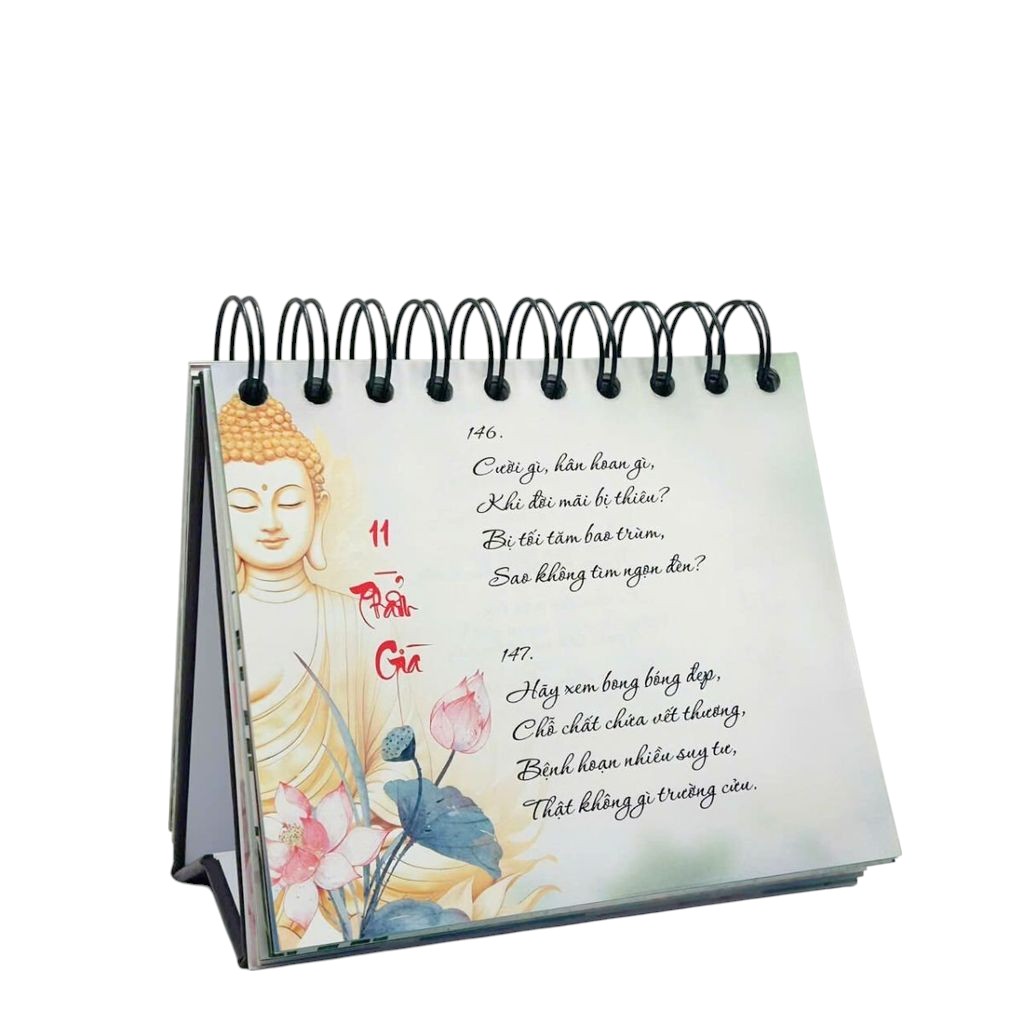 11
Phẩm
Già
146.
Cười gì, hân hoan gì,
Khi đời mãi bị thiêu?
Bị tối tăm bao trùm,
Sao không tìm ngọn đèn?
147.
Hãy xem bong bóng đẹp,
Chỗ chất chứa vết thương,
Bệnh hoạn nhiều suy tư,
Thật không gì trường cửu.